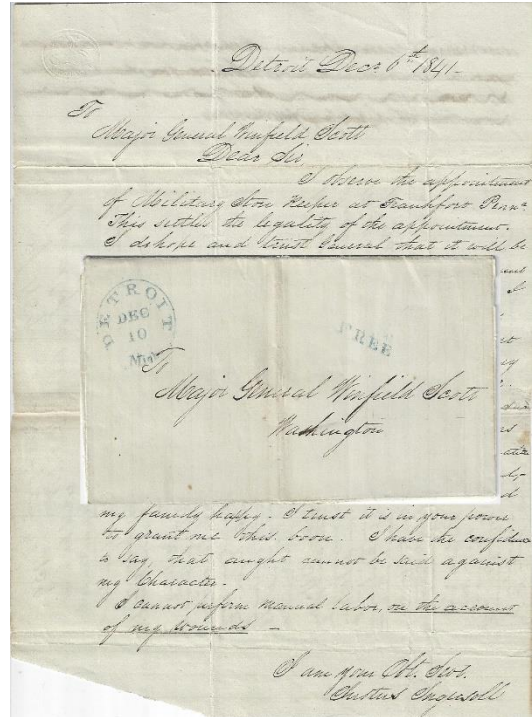 Detroit Decr 6th 1841-
To
Major General Winfield Scott
Dear Sir
I observe the appointment
of Military Store Keeper at Frankford Penna
This settles the legality of the appointment.
I do hope and trust General that it will be
I
DETROIT
DEC
10
Mich
FREE
To
Major General Winfield Scott
Washington
my family happy. I trust it is in your power
to grant me this boon. I have the confidence
to say, that aught cannot be said against
my Character.
I cannot perform manual labor, on the account
of my wounds -
I am your Obt. Servt.
Justus Ingersoll